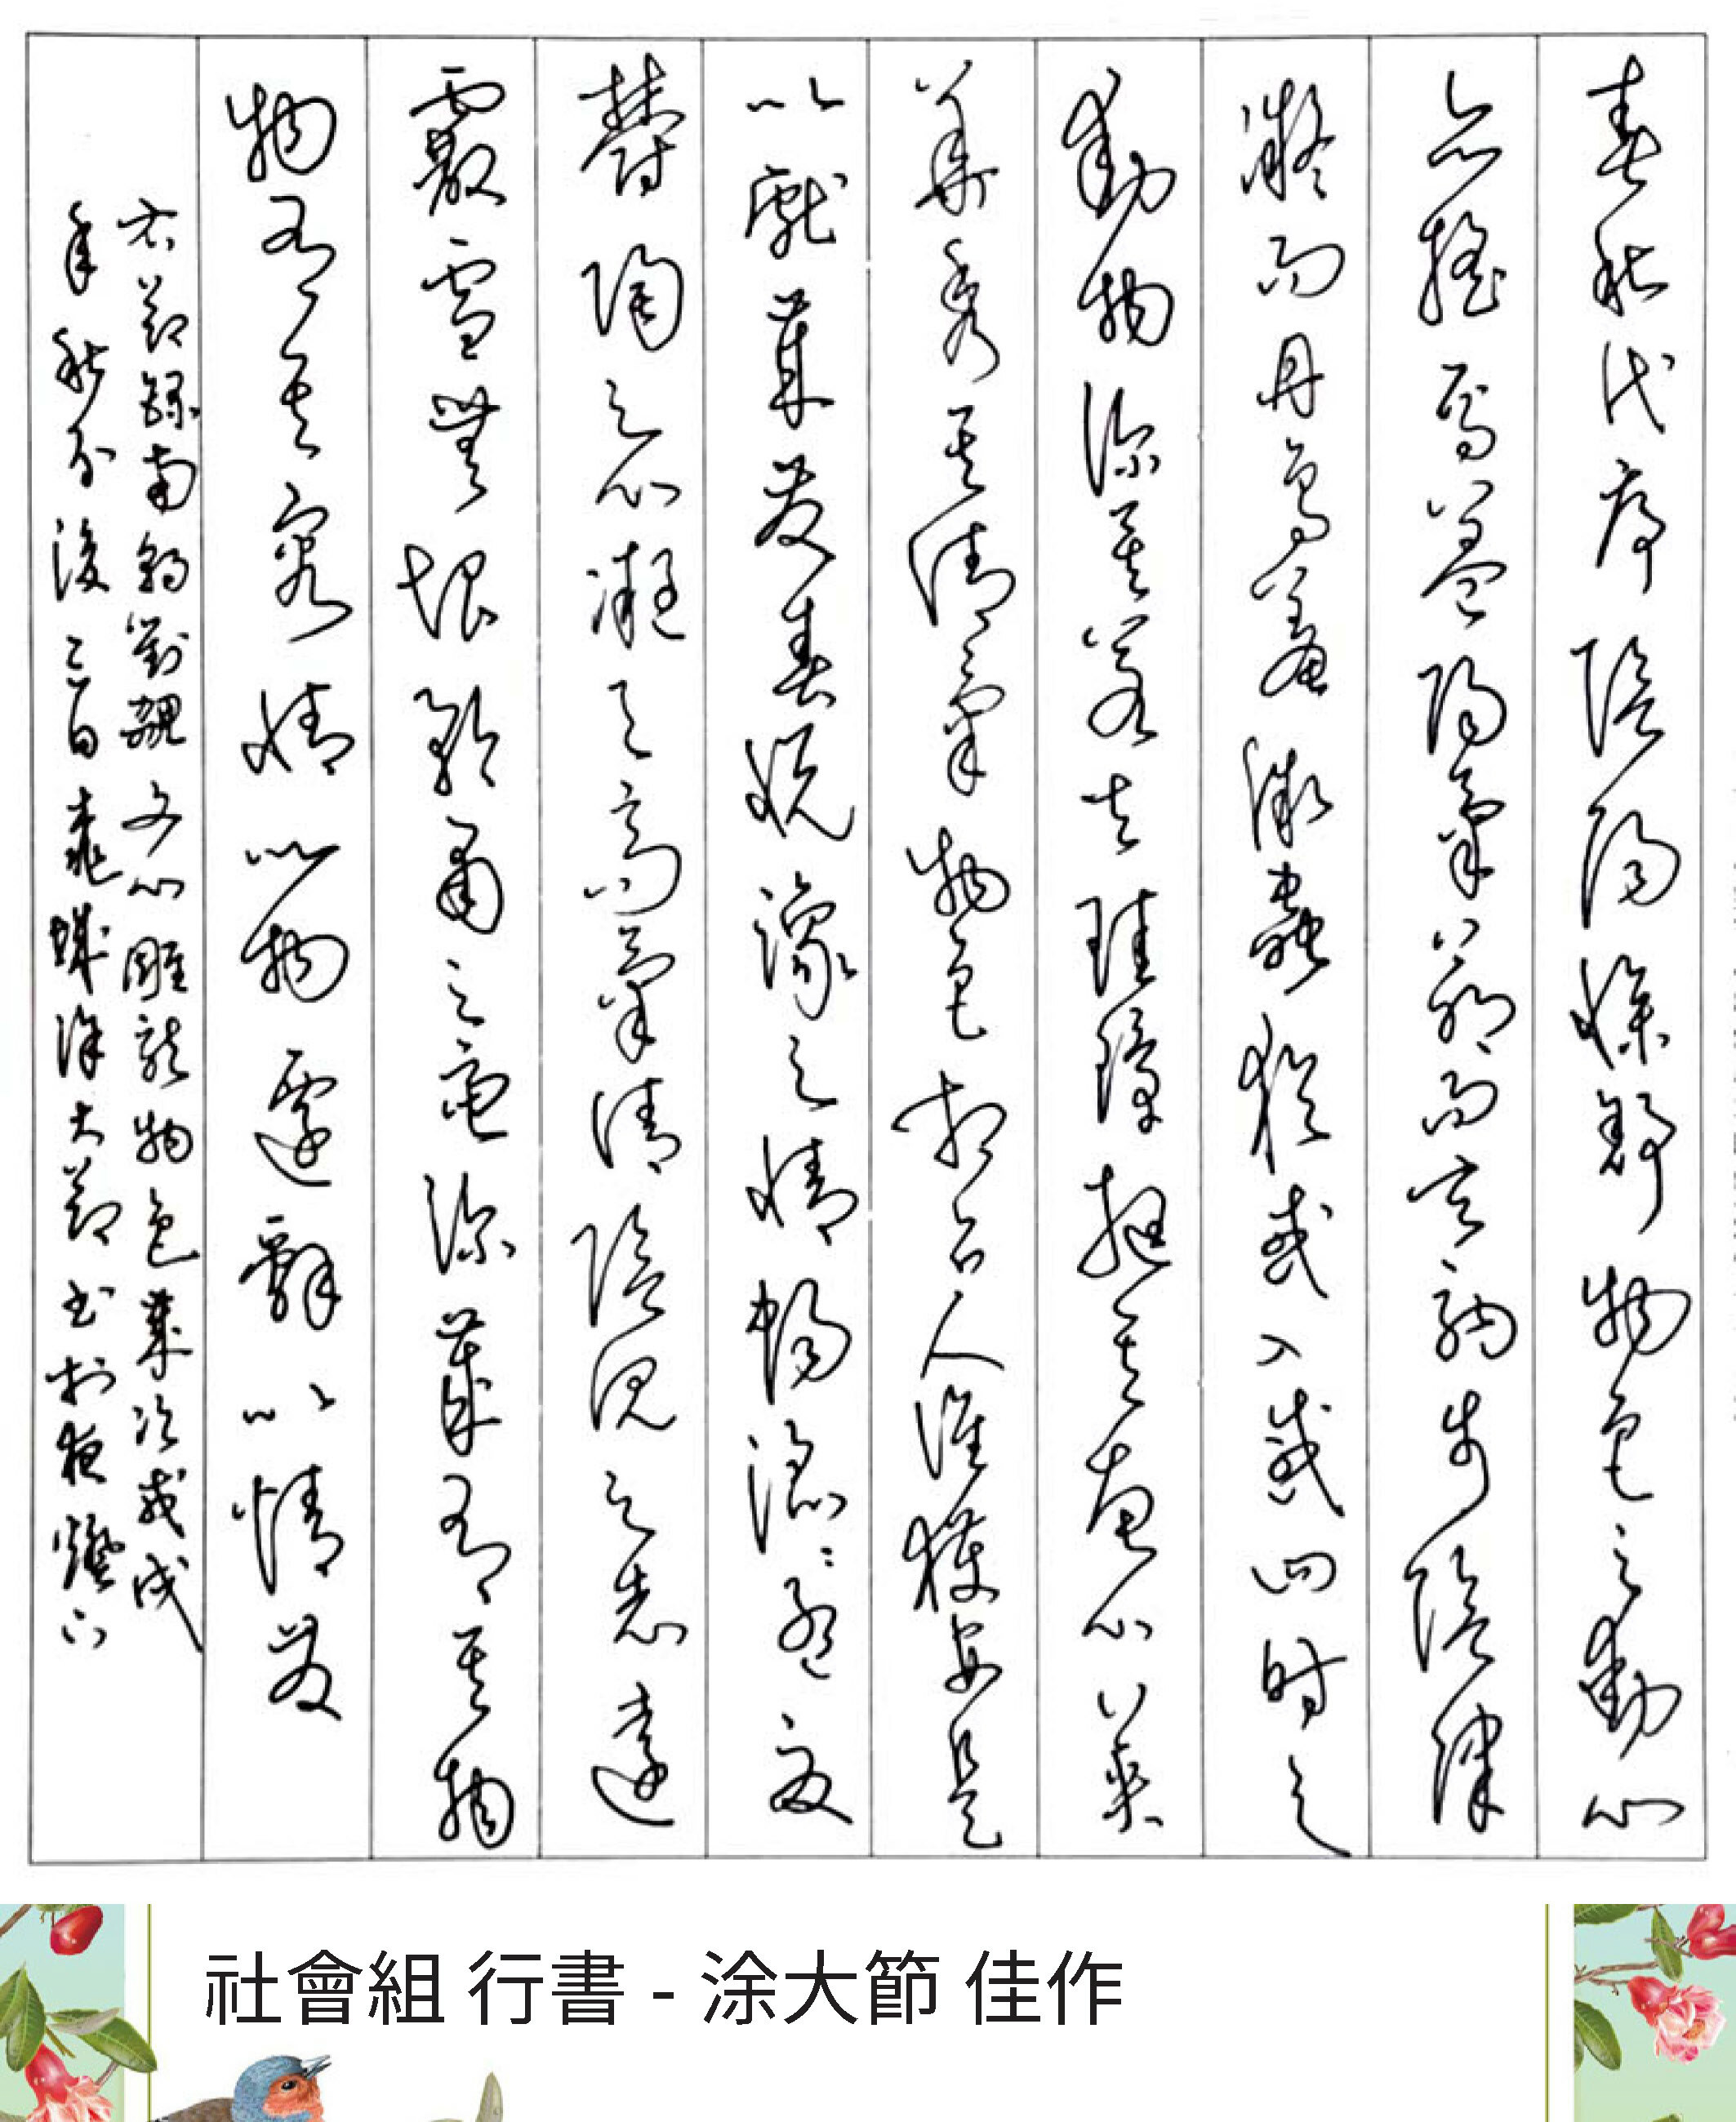 春秋代序陰陽慘舒物色之動心
亦搖焉蓋陽氣萌而玄駒步陰律
凝而丹鳥羞微蟲猶或入感四時之
動物深矣若夫珪璋挺其惠心英
華秀其清氣物色相召人誰獲安是
以獻歲發春悅豫之情暢滔滔孟夏
鬱陶之心凝天高氣清陰沉之志遠
霰雪無垠矜肅之慮深歲有其物
物有其容情以物遷辭以情發
右節錄南朝劉勰文心雕龍物色歲次戊戌
年秋分後三日城涂大節書於夜燈下
社會組 行書 - 涂大節 佳作